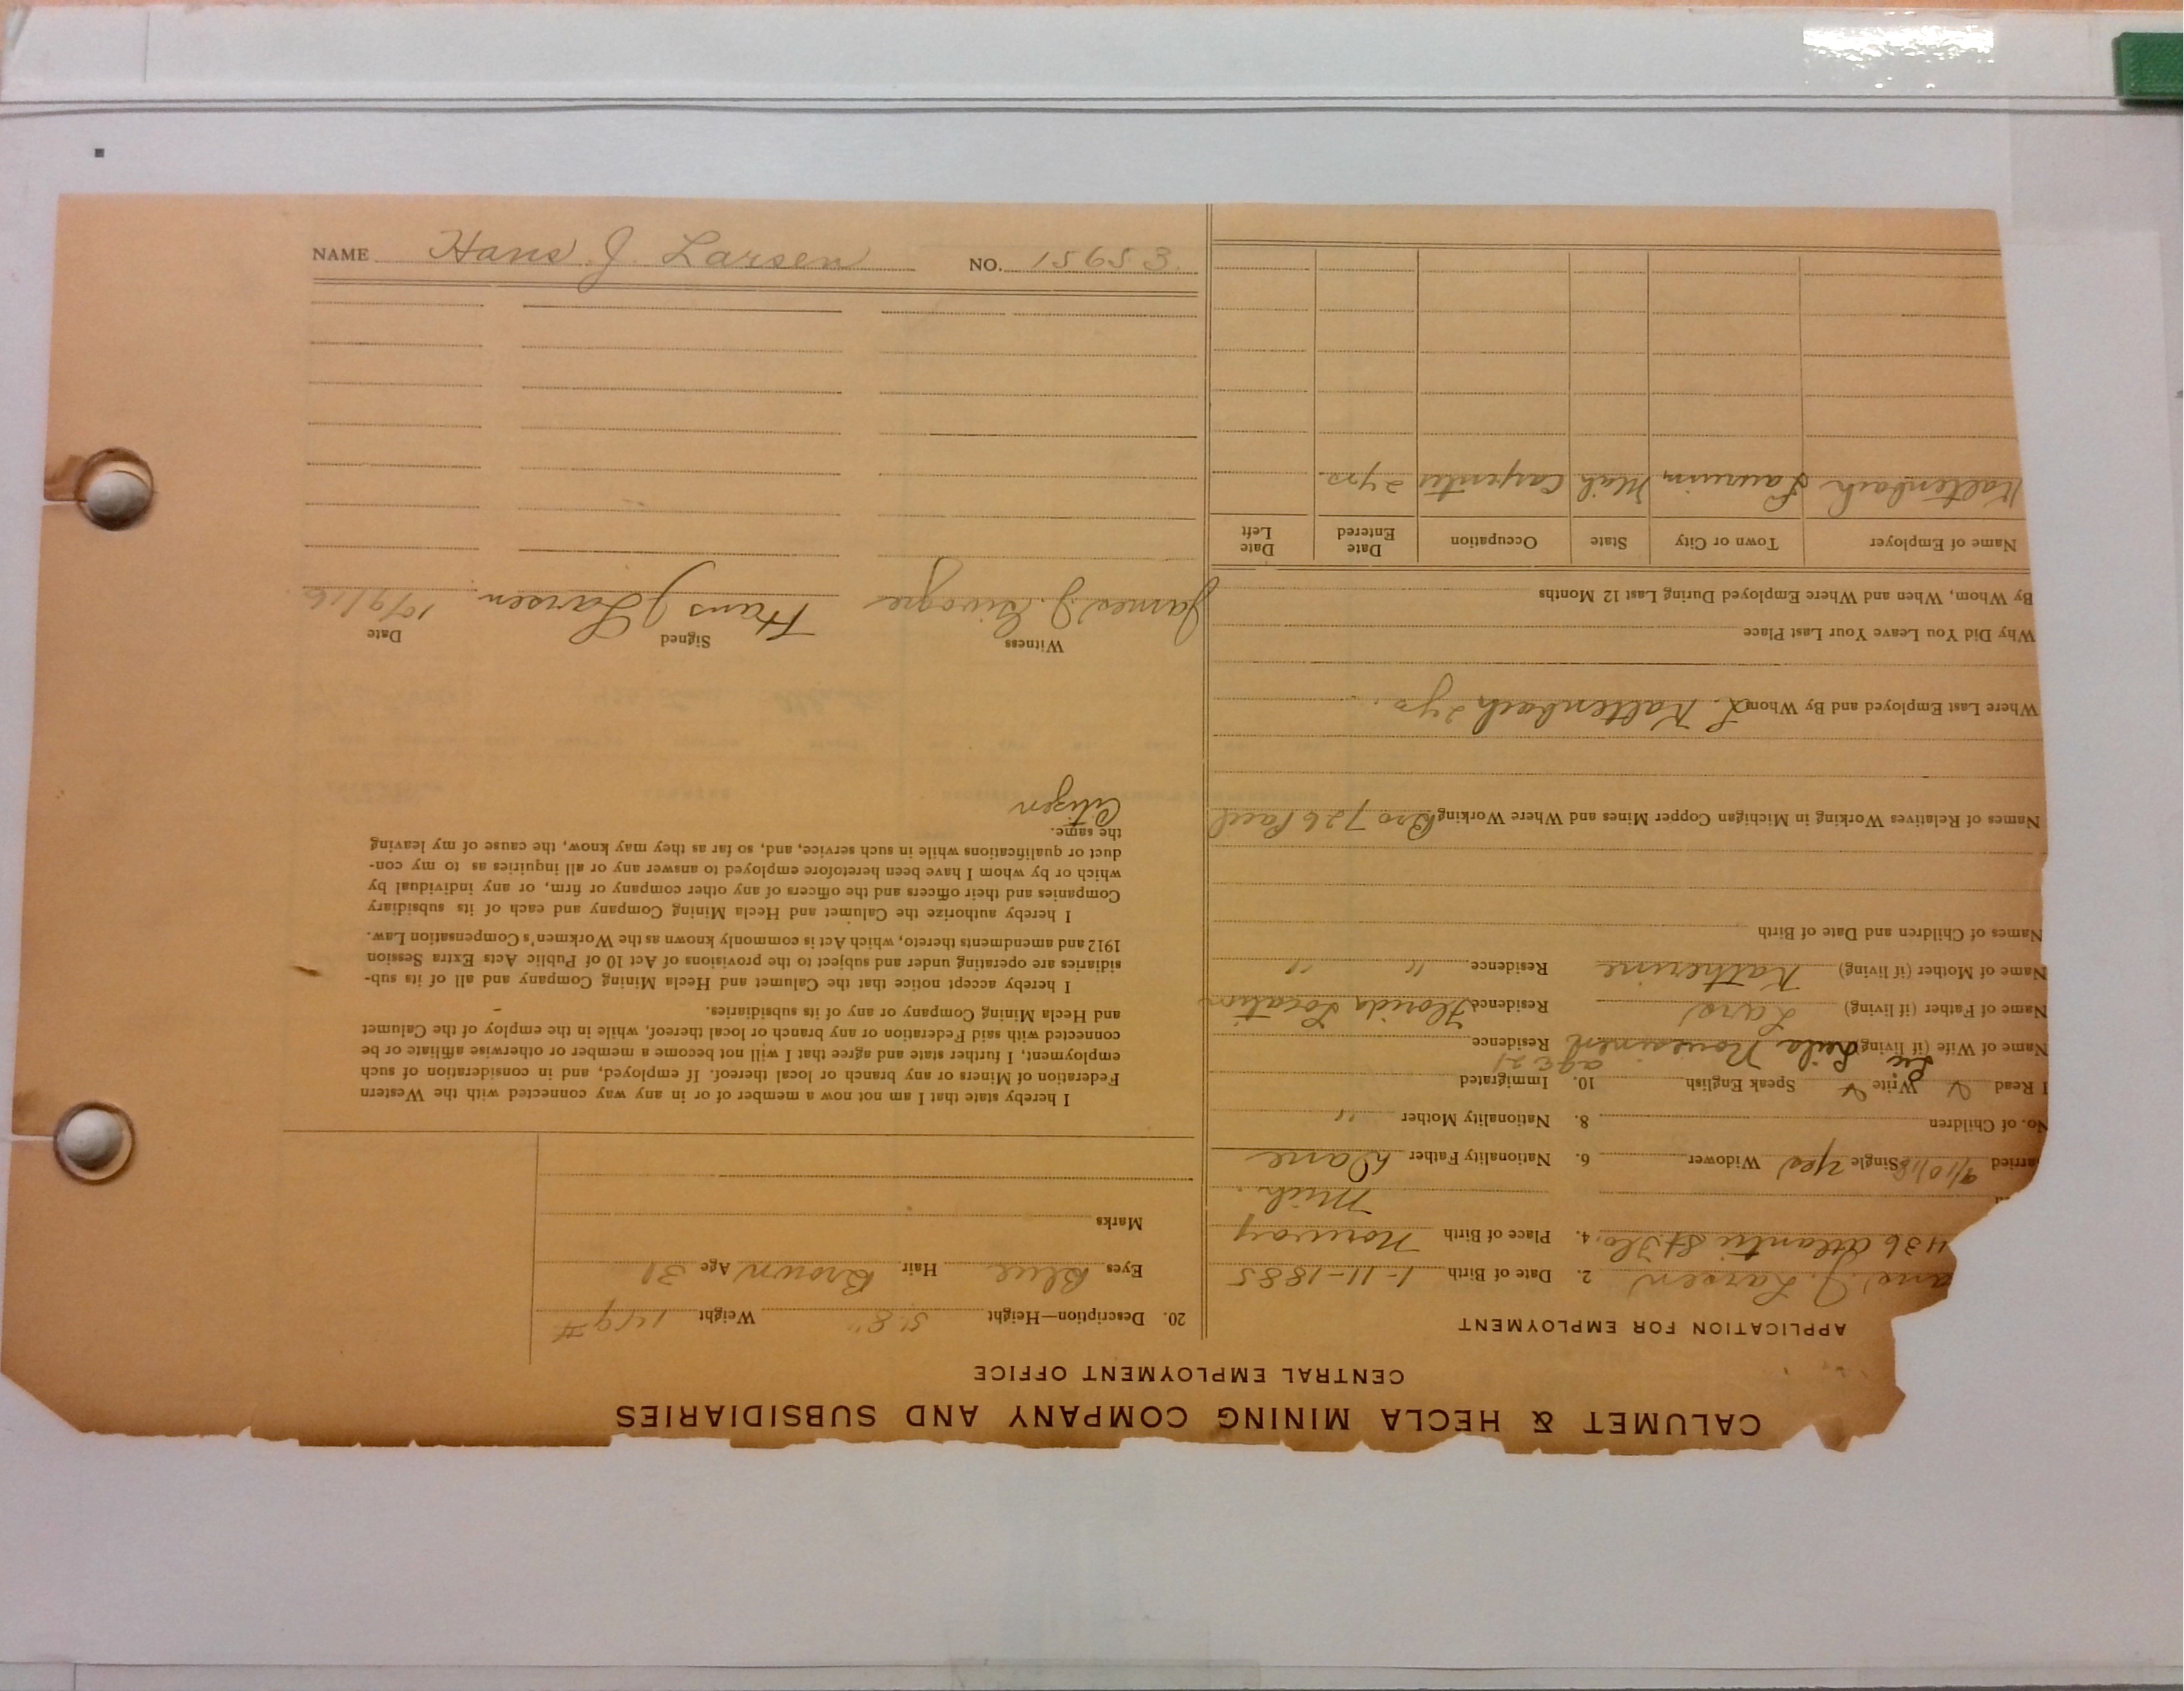 NAME Hans J. Larsen NO. 15653.
CALUMET & HECLA MINING COMPANY AND SUBSIDIARIES
CENTRAL EMPLOYMENT OFFICE
APPLICATION FOR EMPLOYMENT
J. Larsen 2. Date of Birth 1-11-1885
436 Atlantic St. Flo. 4. Place of Birth Norway
Mich.
arried 9/10/18 Single yes Widower 6. Nationality Father Dane
No. of Children 8. Nationality Mother "
I Read v Write v Speak English 10. Immigrated
Name of Wife (if living) Leila age 21 Residence
Name of Father (if living) Lars Residence Florida Location
Name of Mother (if living) Katherine Residence " "
Names of Children and Date of Birth
Names of Relatives Working in Michigan Copper Mines and Where Working Bro 726
Where Last Employed and By Whom L. Kaltenbach 2 yrs.
Why Did You Leave Your Last Place
By Whom, When and Where Employed During Last 12 Months
Name of Employer Town or City State Occupation Date Entered Date Left
Kaltenbach Laurium Mich Carpenter 2 yrs
20. Description—Height 5' 8" Weight 149 #
Eyes Blue Hair Brown Age 31
Marks
I hereby state that I am not now a member of or in any way connected with the Western
Federation of Miners or any branch or local thereof. If employed, and in consideration of such
employment, I further state and agree that I will not become a member or otherwise affiliate or be
connected with said Federation or any branch or local thereof, while in the employ of the Calumet
and Hecla Mining Company or any of its subsidiaries.
I hereby accept notice that the Calumet and Hecla Mining Company and all of its sub-
sidiaries are operating under and subject to the provisions of Act 10 of Public Acts Extra Session
1912 and amendments thereto, which Act is commonly known as the Workmen's Compensation Law.
I hereby authorize the Calumet and Hecla Mining Company and each of its subsidiary
Companies and their officers and the officers of any other company or firm, or any individual by
which or by whom I have been heretofore employed to answer any or all inquiries as to my con-
duct or qualifications while in such service, and, so far as they may know, the cause of my leaving
the same.
Citizen
Witness Signed Date
James J. Hans J Larsen 10/9/16